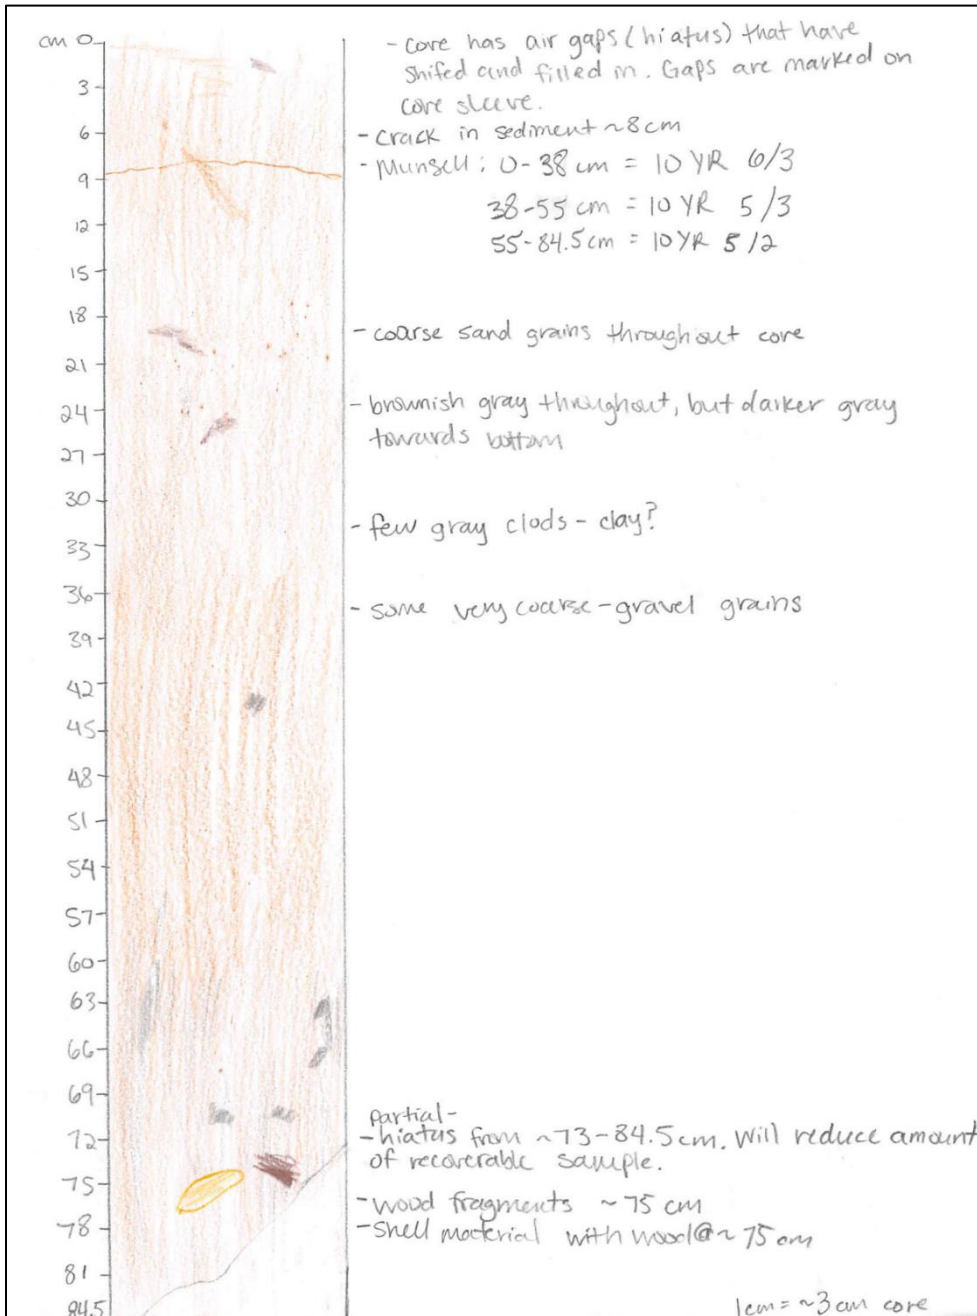 cm 0
3
6
9
12
15
18
21
24
27
30
33
36
39
42
45
48
51
54
57
60
63
66
69
72
75
78
81
84.5
- Core has air gaps (hiatus) that have
shifed and filled in. Gaps are marked on
core sleeve.
- Crack in sediment ~8cm
- Munsell: 0-38 cm = 10 YR 6/3
38-55 cm = 10 YR 5/3
55-84.5 cm = 10 YR 5/2
- coarse sand grains throughout core
- brownish gray throughout, but darker gray
towards bottom
- few gray clods - clay?
- some very coarse-gravel grains
partial-
- hiatus from ~73-84.5 cm. Will reduce amount
of recoverable sample.
- Wood fragments ~75 cm
- Shell material with wood @~75 cm
1cm = ~3 cm core